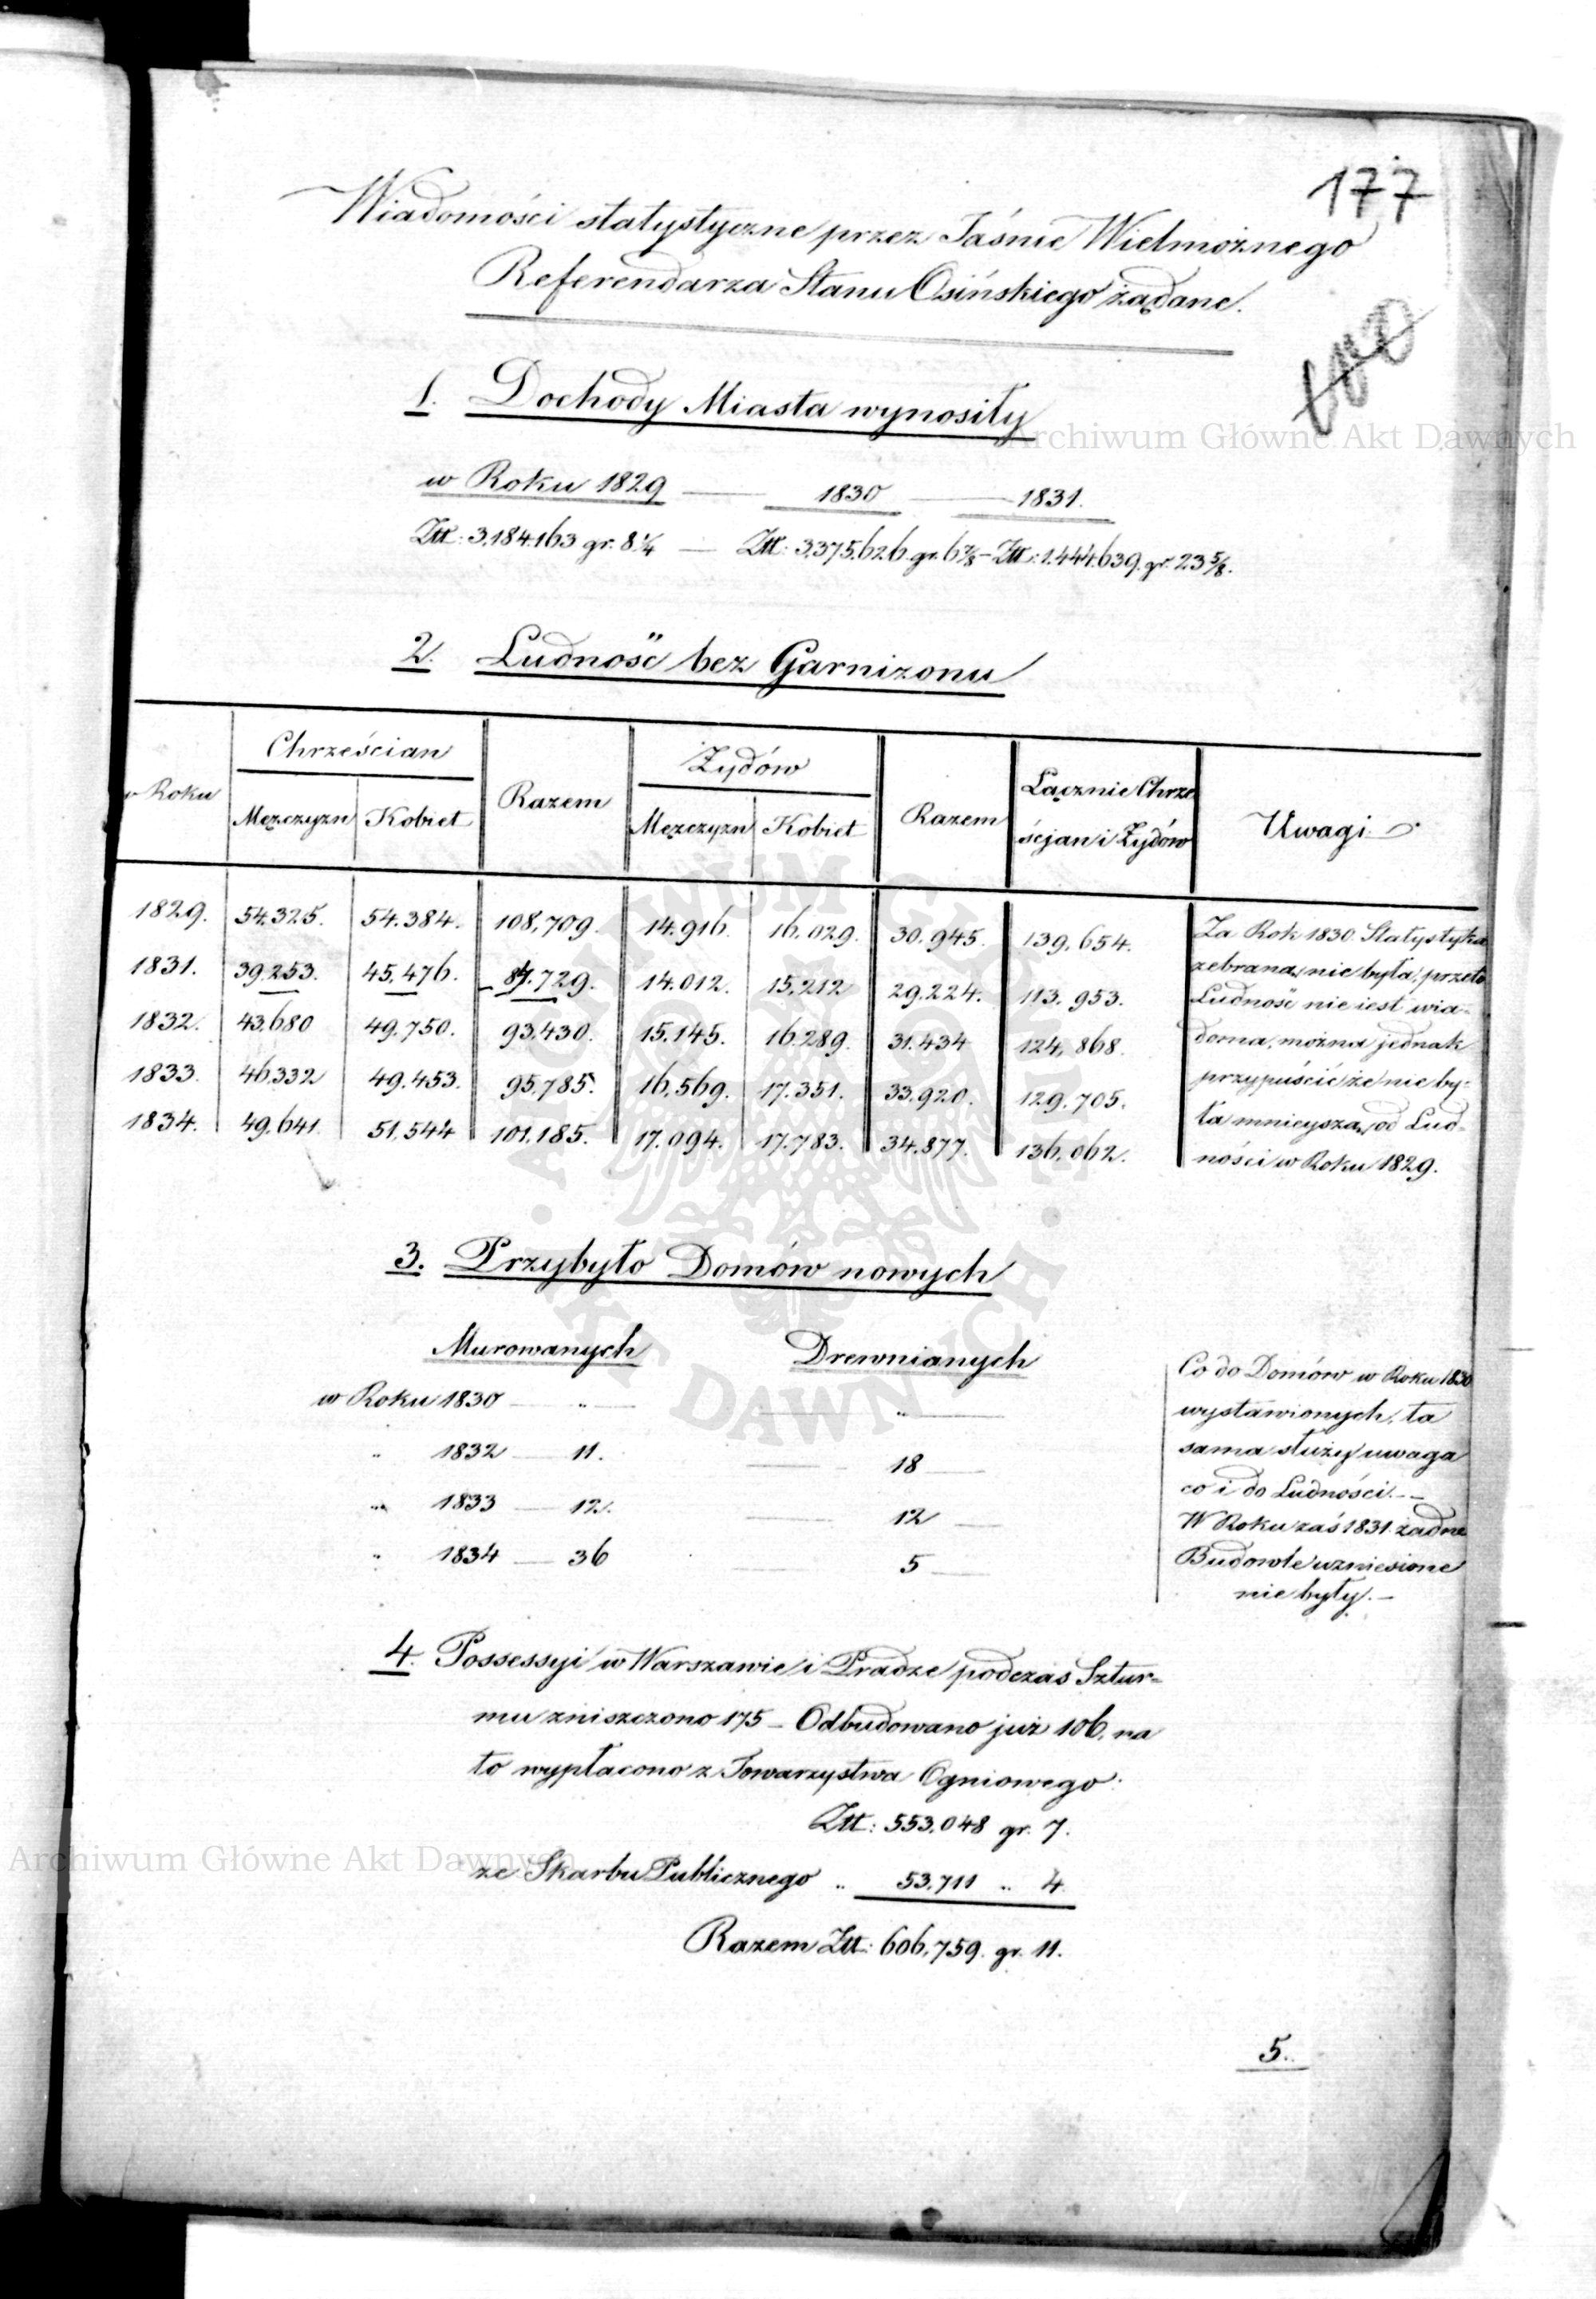 177
Wiadomości statystyczne przez Jaśnie Wielmożnego
Referendarza Stanu Osińskiego żądane.
1. Dochody Miasta wynosiły
w Roku 1829 — 1830 — 1831.
Złt: 3.184.163 gr. 8 1/4 — Złt: 3.375.626 gr. 6 7/8 — Złt: 1.444.639. gr. 23 5/8.
2. Ludność bez Garnizonu
w Roku | Chrześcian | Razem | Żydów | Razem | Łącznie Chrze
Mężczyzn | Kobiet | Mężczyzn | Kobiet | ścjan i Żydów | Uwagi
1829. 54.325. 54.384. 108,709. 14.916. 16.029. 30.945. 139,654.
1831. 39.253. 45.476. 84.729. 14.012. 15,212 29.224. 113.953.
1832. 43.680 49.750. 93.430. 15.145. 16.289. 31.434 124,868.
1833. 46.332 49.453. 95.785. 16.569. 17.351. 33.920. 129.705.
1834. 49.641. 51,544 101.185. 17.094. 17.783. 34.877. 136,062.
Za Rok 1830. Statystyka
zebrana nie była, przeto
Ludność nie iest wia-
doma, można jednak
przypuścić że nie by-
ła mnieysza, od Lud-
ności w Roku 1829.
3. Przybyło Domów nowych
Murowanych Drewnianych
w Roku 1830 — „ — „ —
„ 1832 — 11. — 18 —
„ 1833 — 12. — 12 —
„ 1834 — 36 — 5 —
Co do Domów w Roku 1830
wystawionych, ta
sama służy uwaga
co i do Ludności. —
W Roku zaś 1831. żadne
Budowle wzniesione
nie były. —
4. Possessyi w Warszawie i Pradze podczas Sztur-
mu zniszczono 175 — Odbudowano już 106, na
to wypłacono z Towarzystwa Ogniowego:
Złt: 553.048 gr. 7.
ze Skarbu Publicznego „ 53.711 „ 4.
Razem Złt: 606,759. gr. 11.
5.
Archiwum Główne Akt Dawnych
Archiwum Główne Akt Dawnych
ARCHIWUM GŁÓWNE AKT DAWNYCH